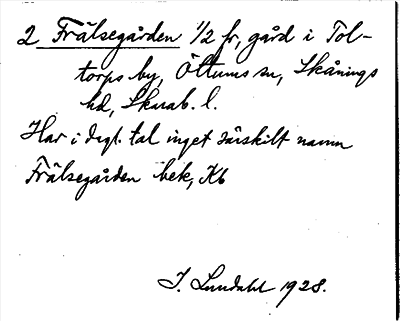 2 Frälsegården 1/2 fr, gård i Tol-
torps by, Öttums sn, Skånings
hd, Skarab. l.
Har i dagl. tal inget särskilt namn
Frälsegården bek, Kb
J. Lundahl 1928.